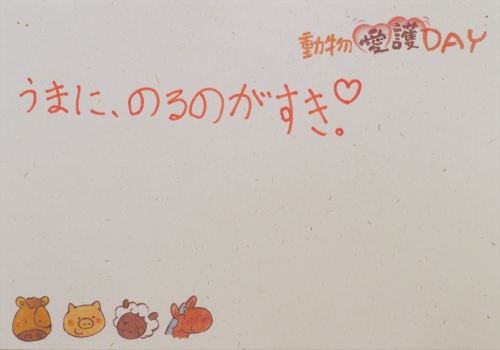 動物愛護DAY
うまに、のるのがすき♡。